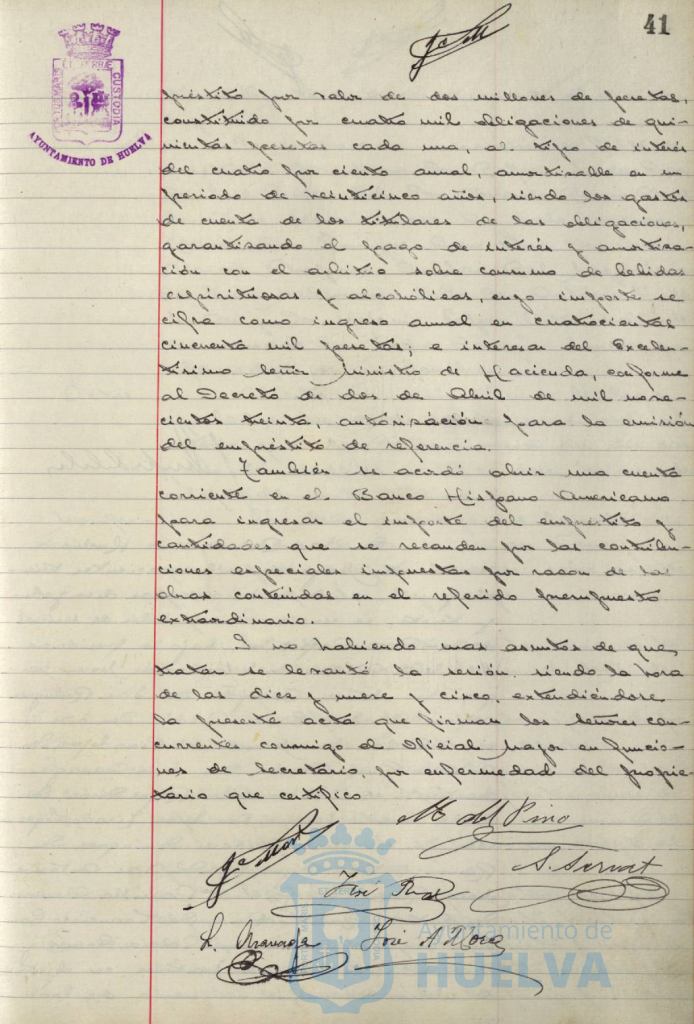 41
préstito por valor de dos millones de pesetas,
constituido por cuatro mil obligaciones de qui-
nientas pesetas cada una, al tipo de interés
del cuatro por ciento anual, amortizable en un
periodo de veinticinco años, siendo los gastos
de cuenta de los titulares de las obligaciones,
garantizando el pago de interés y amortiza-
ción con el arbitrio sobre consumo de bebidas
espirituosas y alcohólicas, cuyo importe se
cifra como ingreso anual en cuatrocientas
cincuenta mil pesetas; e interesar del Excelen-
tísimo Señor Ministro de Hacienda, conforme
al Decreto de dos de Abril de mil nove-
cientos treinta, autorización para la emisión
del empréstito de referencia.
También se acordó abrir una cuenta
corriente en el Banco Hispano Americano
para ingresar el importe del empréstito y
cantidades que se recauden por las contribu-
ciones especiales impuestas por razon de las
obras contenidas en el referido presupuesto
extraordinario.
Y no habiendo mas asuntos de que
tratar se levantó la sesión, siendo la hora
de las diez y nueve y cinco, extendiéndose
la presente acta que firman los señores con-
currentes conmigo el Oficial Mayor en funcio-
nes de Secretario, por enfermedad del propie-
tario que certifico
M del Pino
José
José A
AYUNTAMIENTO DE HUELVA
CUSTODIA
Ayuntamiento de
HUELVA